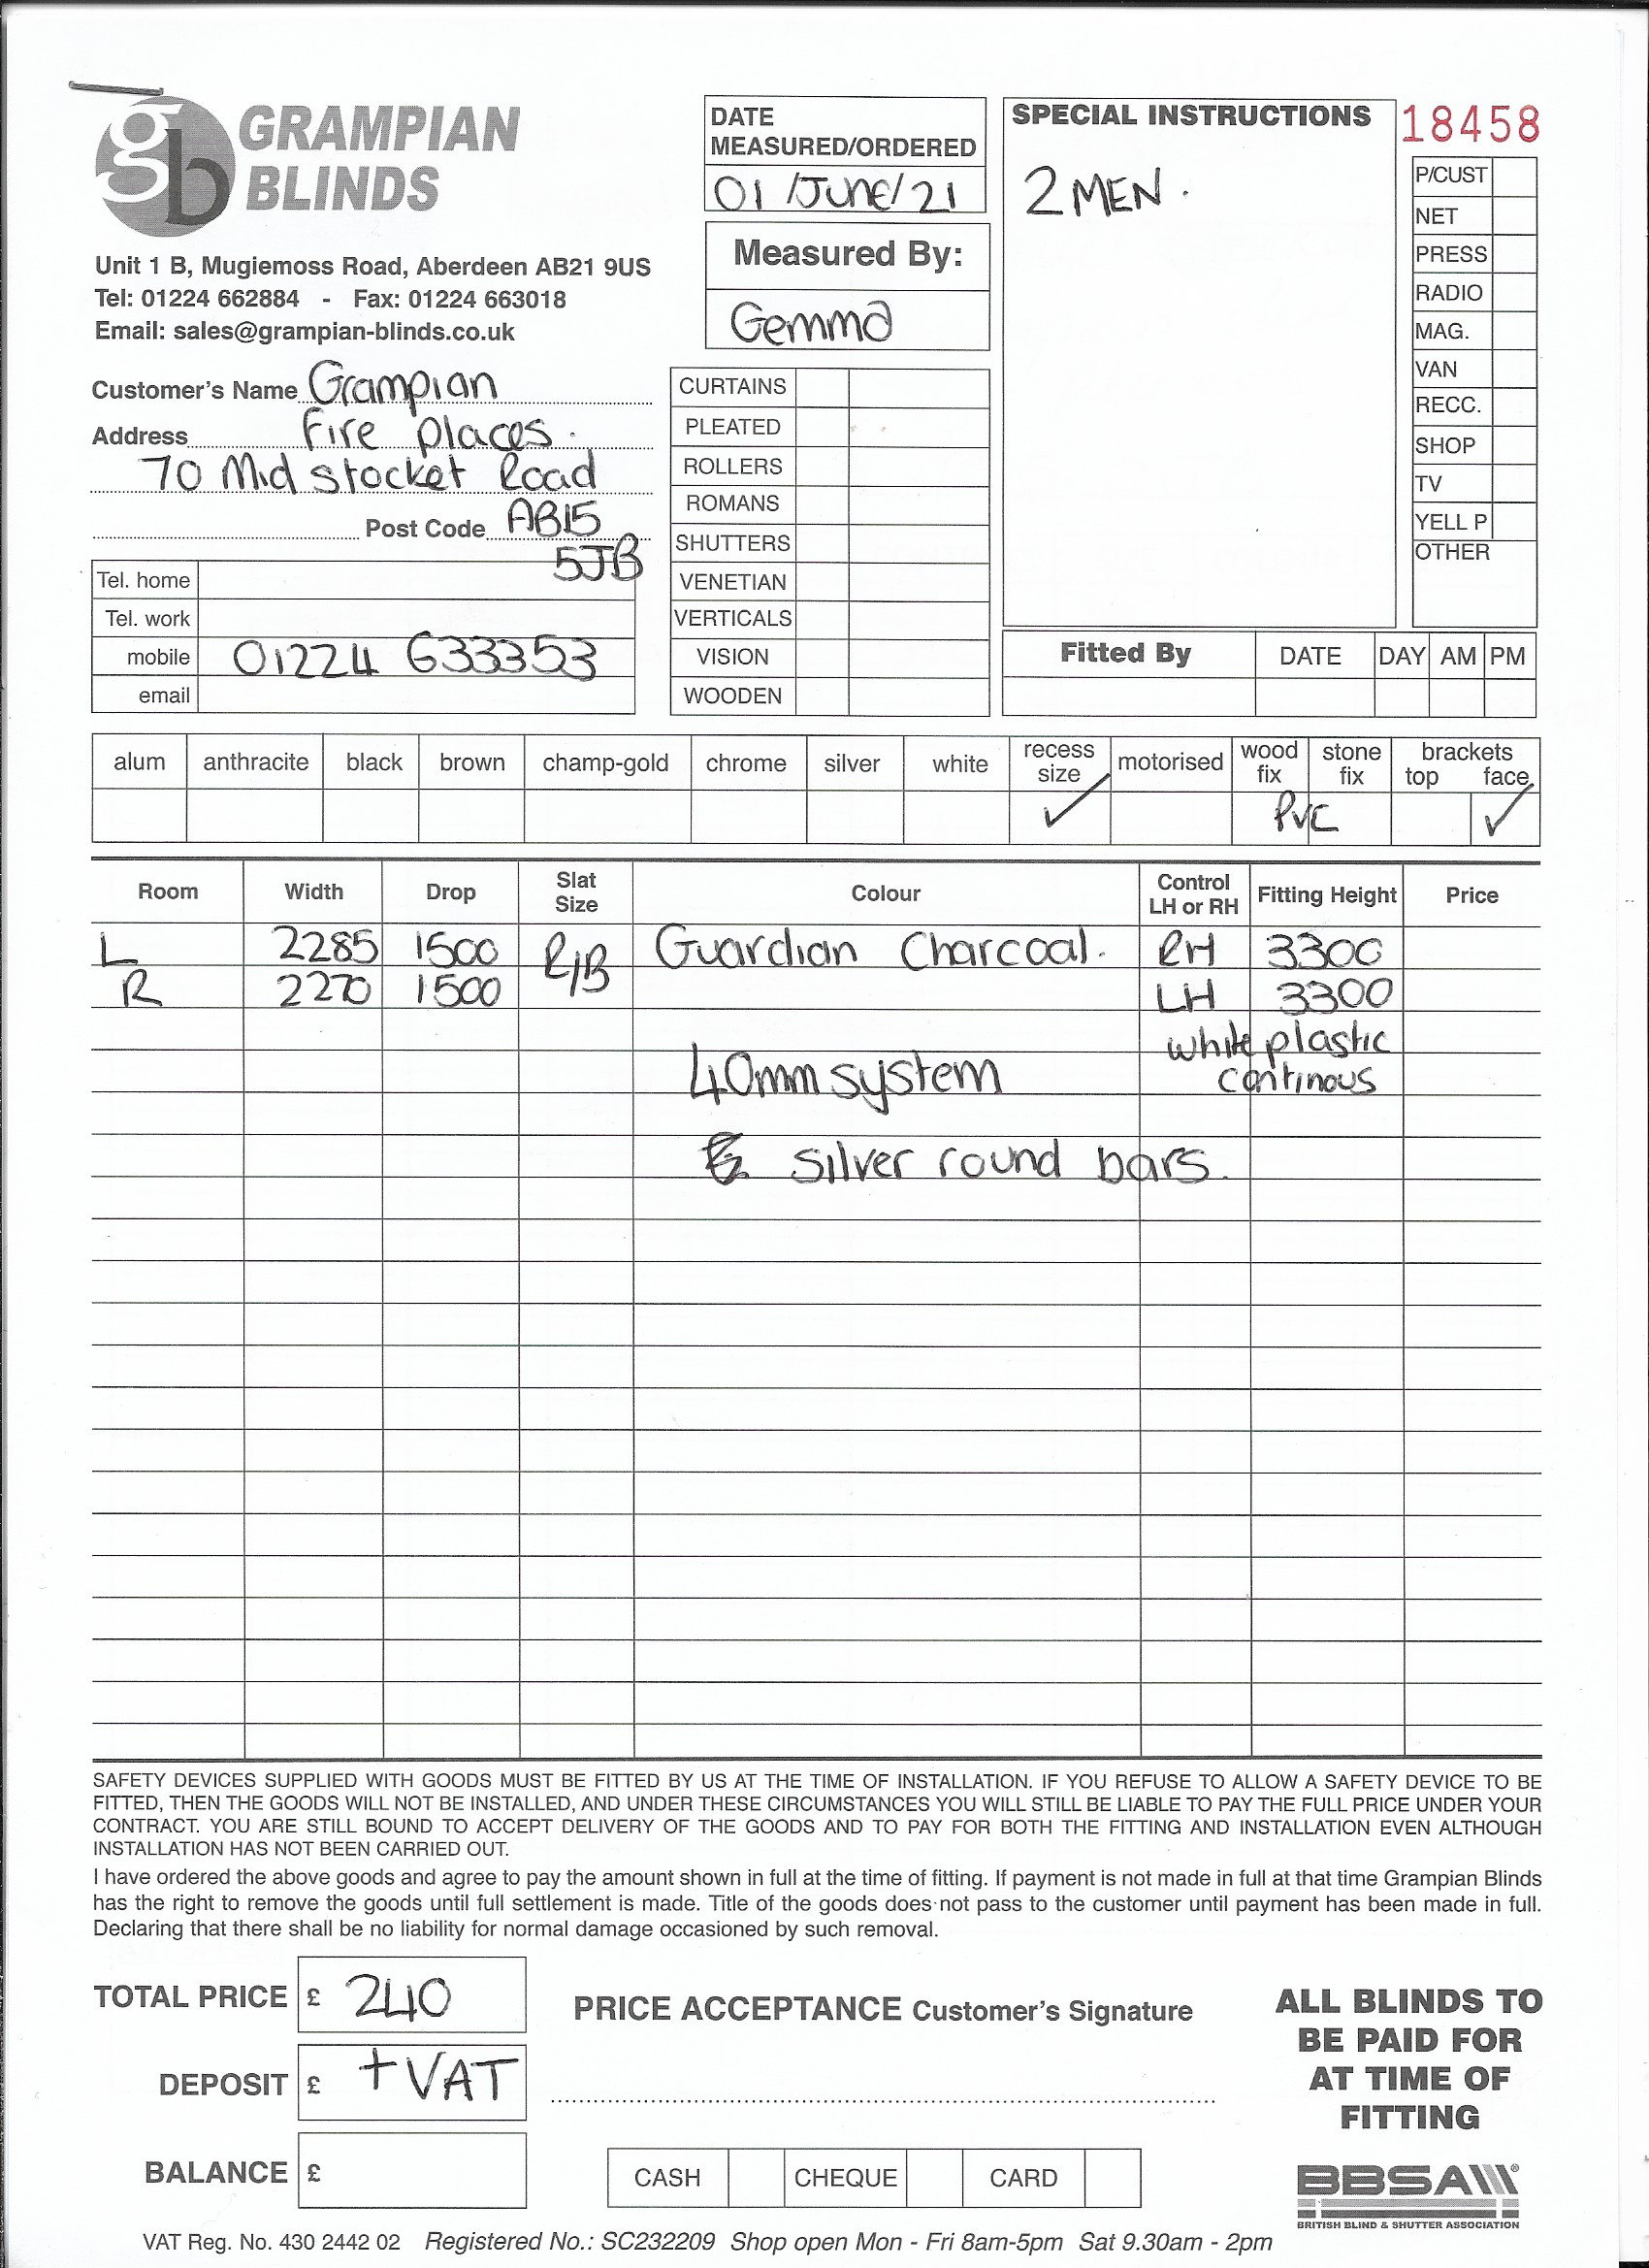 gb GRAMPIAN
BLINDS
Unit 1 B, Mugiemoss Road, Aberdeen AB21 9US
Tel: 01224 662884 - Fax: 01224 663018
Email: sales@grampian-blinds.co.uk
DATE
MEASURED/ORDERED
01/June/21
Measured By:
Gemma
SPECIAL INSTRUCTIONS
2 MEN.
18458
P/CUST
NET
PRESS
RADIO
MAG.
VAN
RECC.
SHOP
TV
YELL P
OTHER
Customer's Name Grampian
Address Fire places.
70 Mid stocket Road
Post Code AB15
5JB
Tel. home
Tel. work
mobile 01224 633353
email
CURTAINS
PLEATED
ROLLERS
ROMANS
SHUTTERS
VENETIAN
VERTICALS
VISION
WOODEN
Fitted By DATE DAY AM PM
alum anthracite black brown champ-gold chrome silver white recess size motorised wood fix stone fix brackets top face
✓ PVC ✓
Room Width Drop Slat Size Colour Control LH or RH Fitting Height Price
L 2285 1500 R/B Guardian Charcoal. RH 3300
R 2270 1500 LH 3300
white plastic
continous
40mm system
silver round bars.
SAFETY DEVICES SUPPLIED WITH GOODS MUST BE FITTED BY US AT THE TIME OF INSTALLATION. IF YOU REFUSE TO ALLOW A SAFETY DEVICE TO BE
FITTED, THEN THE GOODS WILL NOT BE INSTALLED, AND UNDER THESE CIRCUMSTANCES YOU WILL STILL BE LIABLE TO PAY THE FULL PRICE UNDER YOUR
CONTRACT. YOU ARE STILL BOUND TO ACCEPT DELIVERY OF THE GOODS AND TO PAY FOR BOTH THE FITTING AND INSTALLATION EVEN ALTHOUGH
INSTALLATION HAS NOT BEEN CARRIED OUT.
I have ordered the above goods and agree to pay the amount shown in full at the time of fitting. If payment is not made in full at that time Grampian Blinds
has the right to remove the goods until full settlement is made. Title of the goods does not pass to the customer until payment has been made in full.
Declaring that there shall be no liability for normal damage occasioned by such removal.
TOTAL PRICE £ 240
DEPOSIT £ + VAT
BALANCE £
PRICE ACCEPTANCE Customer's Signature
CASH CHEQUE CARD
ALL BLINDS TO
BE PAID FOR
AT TIME OF
FITTING
BBSA ®
BRITISH BLIND & SHUTTER ASSOCIATION
VAT Reg. No. 430 2442 02 Registered No.: SC232209 Shop open Mon - Fri 8am-5pm Sat 9.30am - 2pm